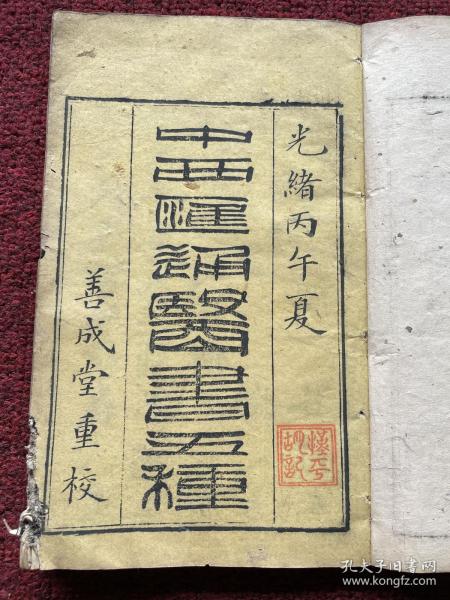 光緒丙午夏
中西匯通醫書五種
善成堂重校
孔夫子旧书网
www.kongfz.com